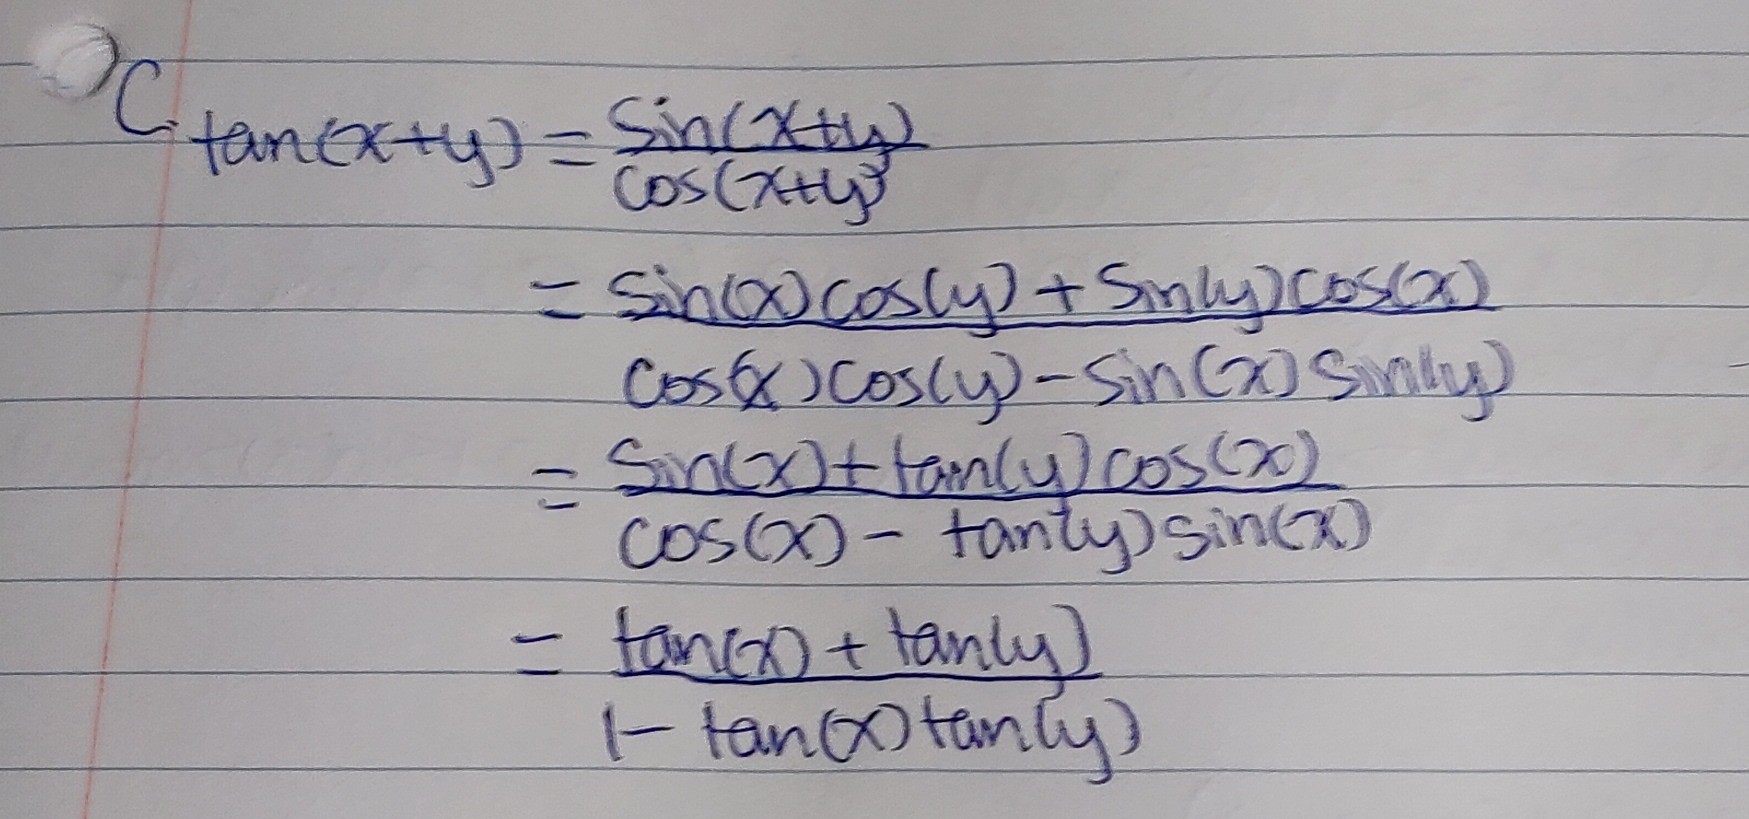 C. tan(x+y) = sin(x+y)/cos(x+y)
= sin(x)cos(y) + sin(y)cos(x)/cos(x)cos(y) - sin(x)sin(y)
= sin(x) + tan(y)cos(x)/cos(x) - tan(y)sin(x)
= tan(x) + tan(y)/1 - tan(x)tan(y)